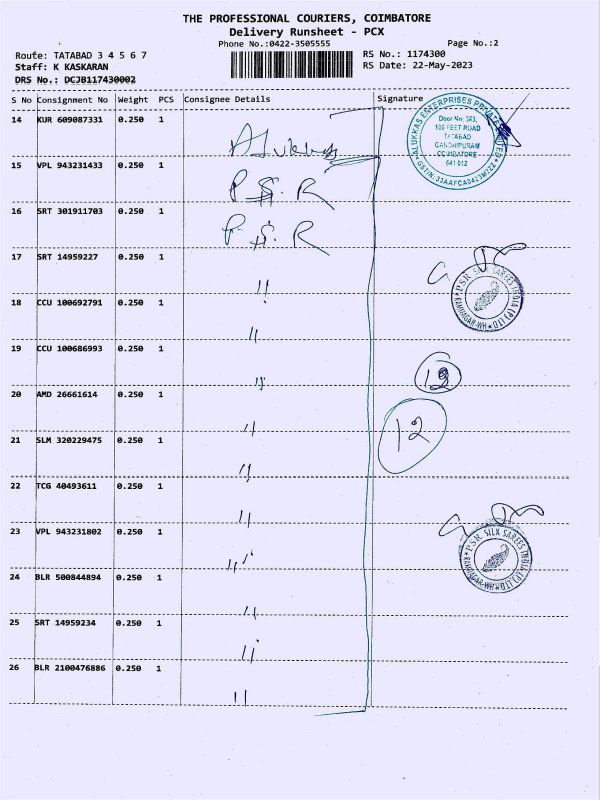 THE PROFESSIONAL COURIERS, COIMBATORE
Delivery Runsheet - PCX
Phone No.:0422-3505555
Page No.:2
Route: TATABAD 3 4 5 6 7
RS No.: 1174300
Staff: K KASKARAN
RS Date: 22-May-2023
DRS No.: DCJB117430002
S No Consignment No Weight PCS Consignee Details Signature
14 KUR 609087331 0.250 1 Alukkas
ALUKKAS ENTERPRISES PRIVATE LIMITED
Door No: 383,
100 FEET ROAD
TATABAD
GANDHIPURAM
COIMBATORE
641 012
15 VPL 943231433 0.250 1 P.S.R
16 SRT 301911703 0.250 1 P.S.R
17 SRT 14959227 0.250 1 "
PSR SILK SAREES INDIA (P) LTD
RAMNAGAR-WH
18 CCU 100692791 0.250 1 "
19 CCU 100686993 0.250 1 "
20 AMD 26661614 0.250 1 "
12
21 SLM 320229475 0.250 1 "
22 TCG 40493611 0.250 1 "
23 VPL 943231802 0.250 1 "
PSR SILK SAREES INDIA (P) LTD
RAMNAGAR-WH
24 BLR 500844894 0.250 1 "
25 SRT 14959234 0.250 1 "
26 BLR 2100476886 0.250 1 "